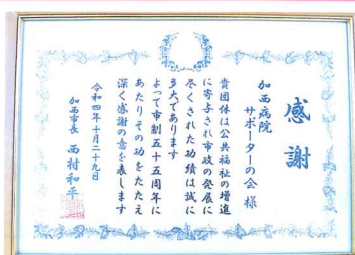 感謝
加西病院
サポーターの会 様
貴団体は公共福祉の増進
に寄与され市政の発展に
尽くされた功績は誠に
多大であります
よって市制五十五周年に
あたりその功をたたえ
深く感謝の意を表します
令和四年十月二十九日
加西市長 西村和平